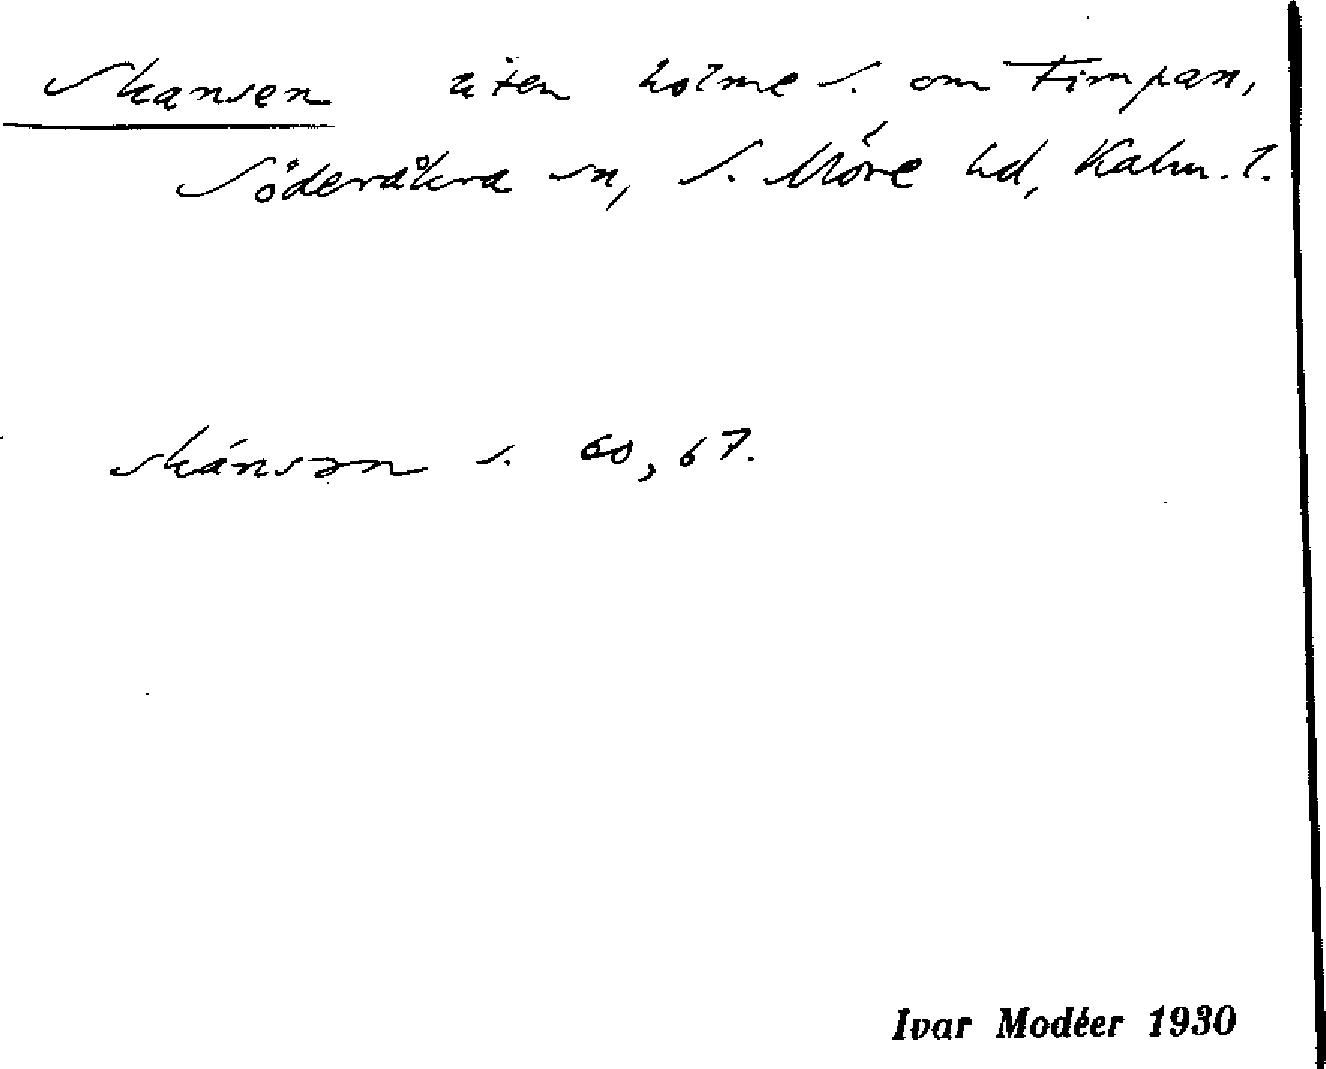 Skansen liten holme S. om Timpan,
Söderåkra sn, S. Möre hd, Kalm. l.
skánsən s. 60, 67.
Ivar Modéer 1930